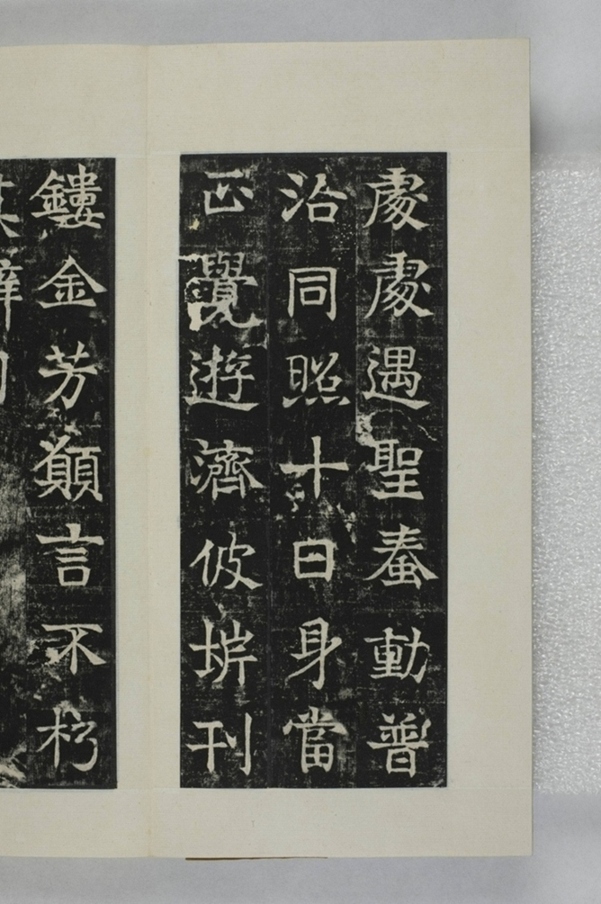 處處遇聖蠢動普
沿同照十日身當
正覺遊濟彼岸刊
鏤金芳願言不朽